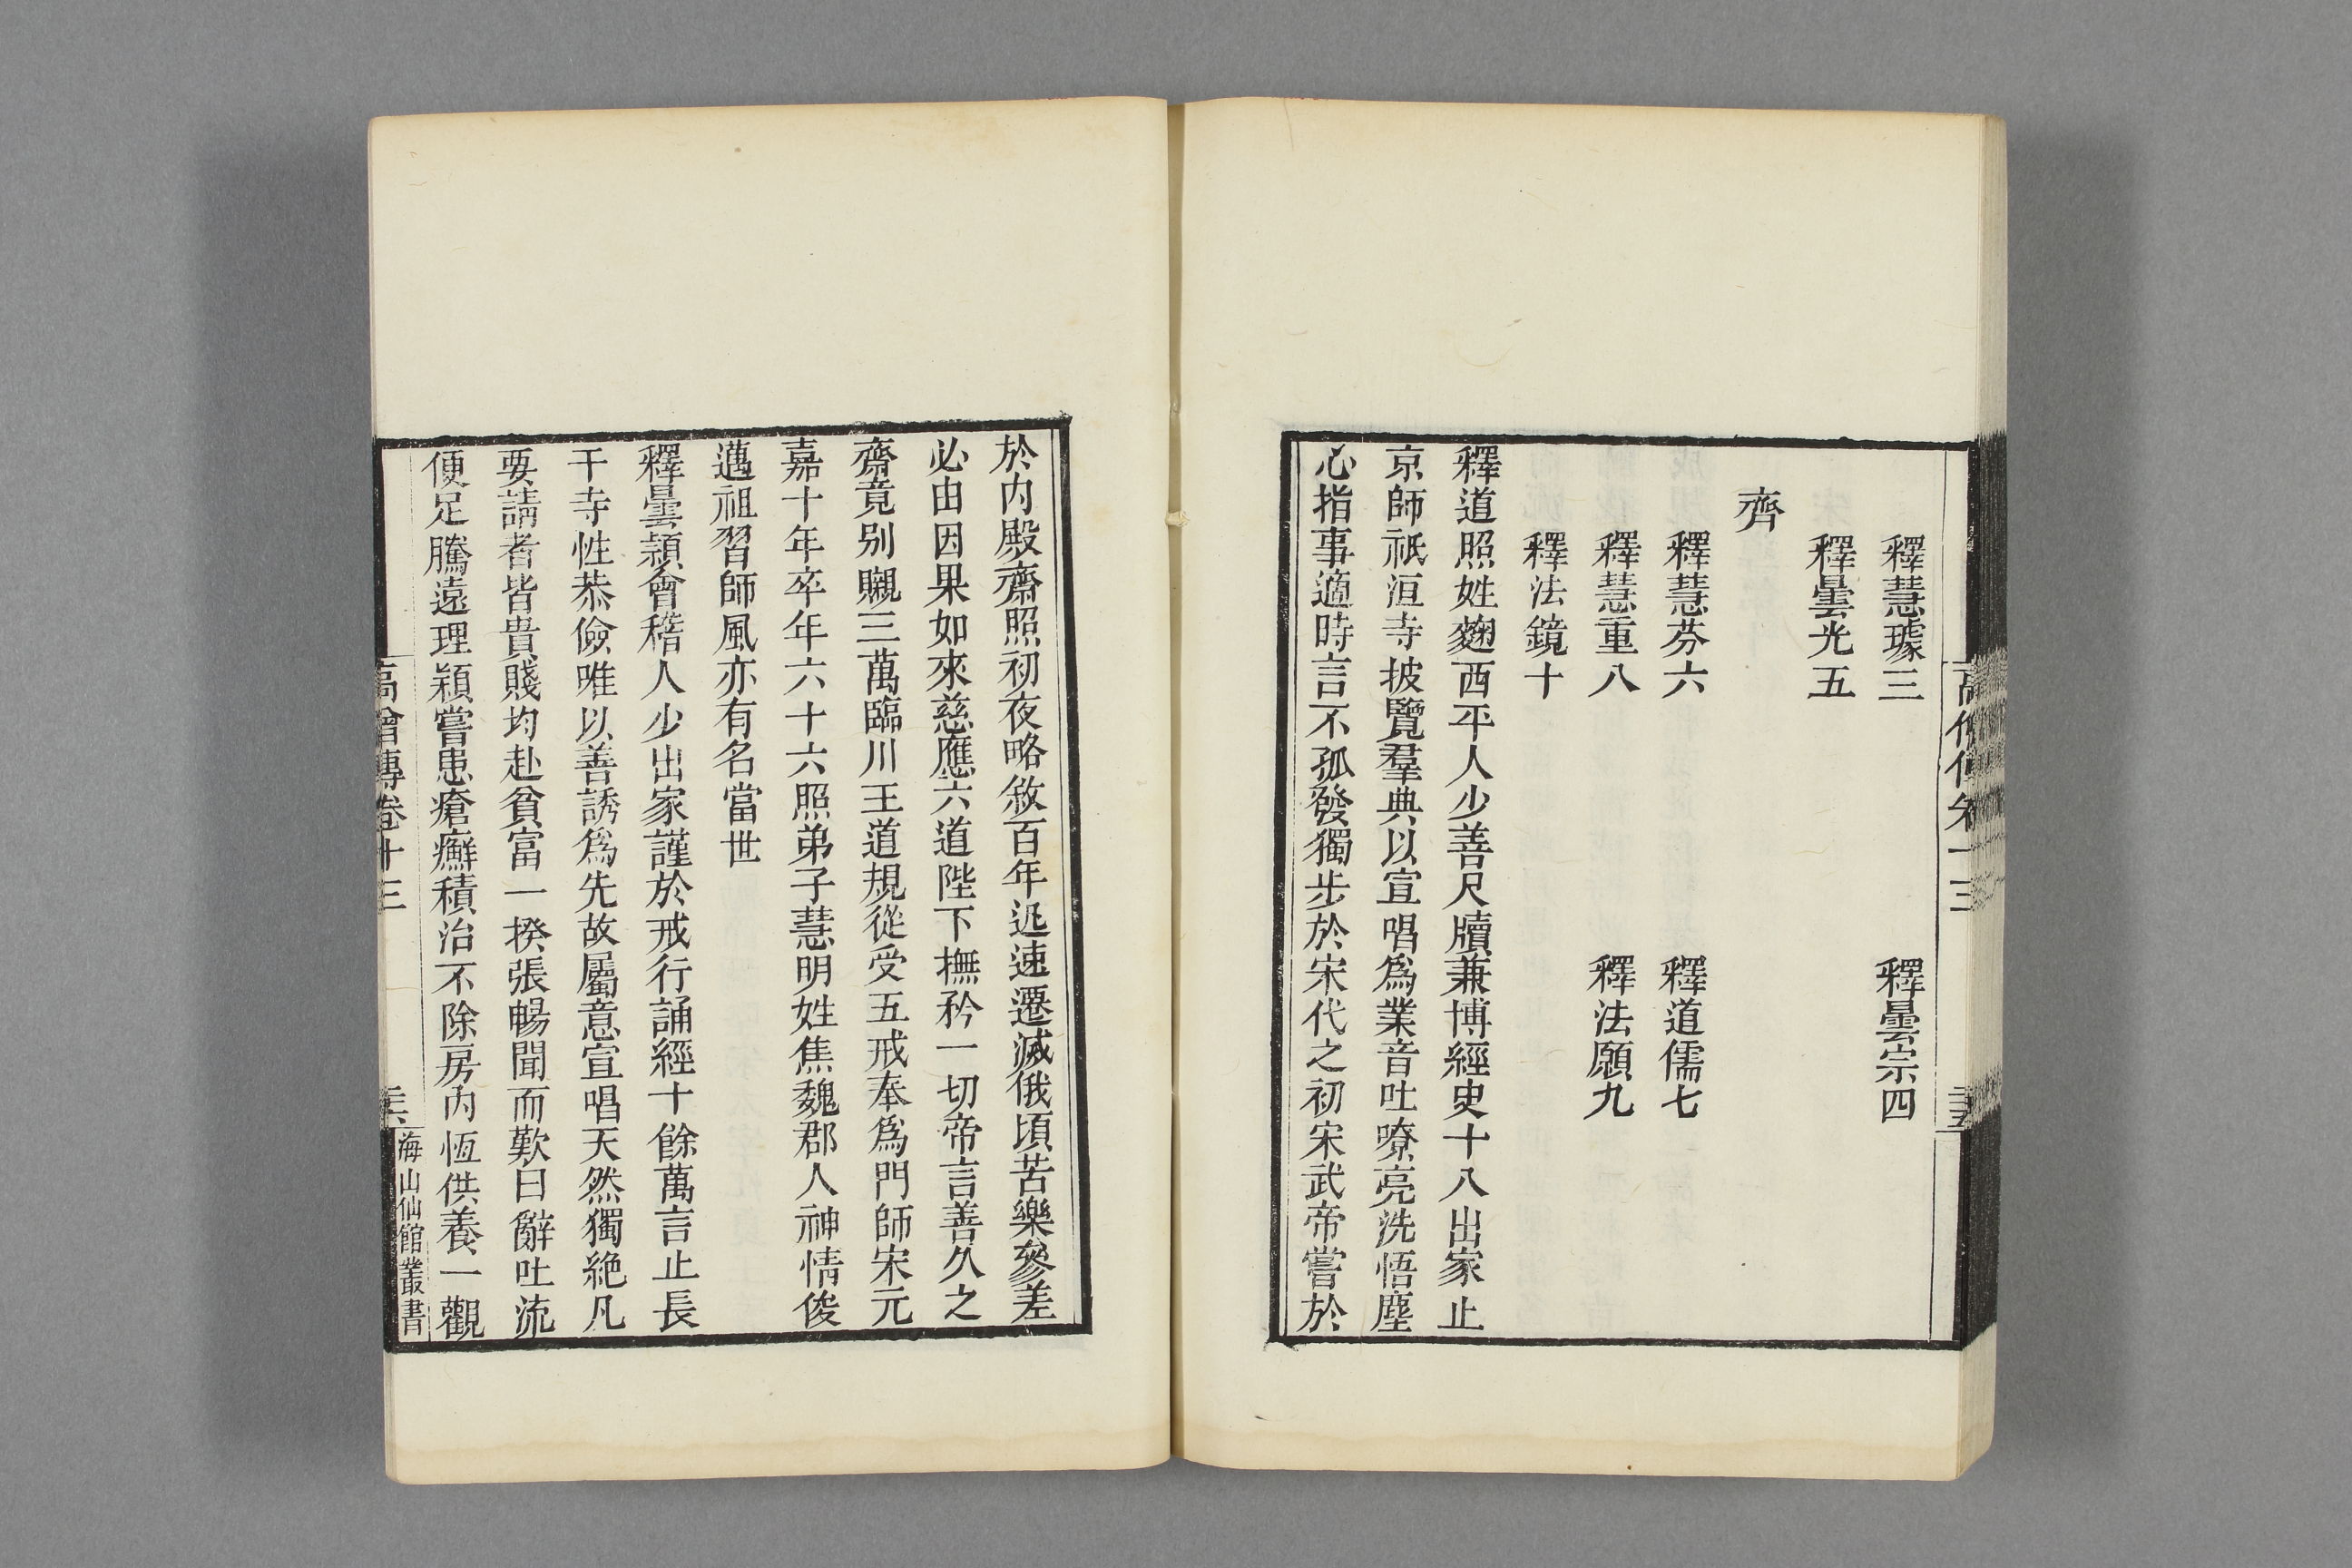 釋慧璩三　釋曇宗四
釋曇光五
齊
釋慧芬六　釋道儒七
釋慧重八　釋法願九
釋法鏡十
釋道照姓麴西平人少善尺牘兼博經史十八出家止
京師祇洹寺披覽羣典以宣唱爲業音吐嘹亮洗悟塵
心指事適時言不孤發獨步於宋代之初宋武帝嘗於
於内殿齋照初夜略敘百年迅速遷滅俄頃苦樂參差
必由因果如來慈應六道陛下撫矜一切帝言善久之
齋竟别嚫三萬臨川王道規從受五戒奉爲門師宋元
嘉十年卒年六十六照弟子慧明姓焦魏郡人神情俊
邁祖習師風亦有名當世
釋曇穎會稽人少出家謹於戒行誦經十餘萬言止長
干寺性恭儉唯以善誘爲先故屬意宣唱天然獨絶凡
要請者皆貴賤均赴貧富一揆張暢聞而歎曰辭吐流
便足騰遠理穎嘗患瘡癬積治不除房内恆供養一觀
高僧傳卷十三
海山仙館叢書